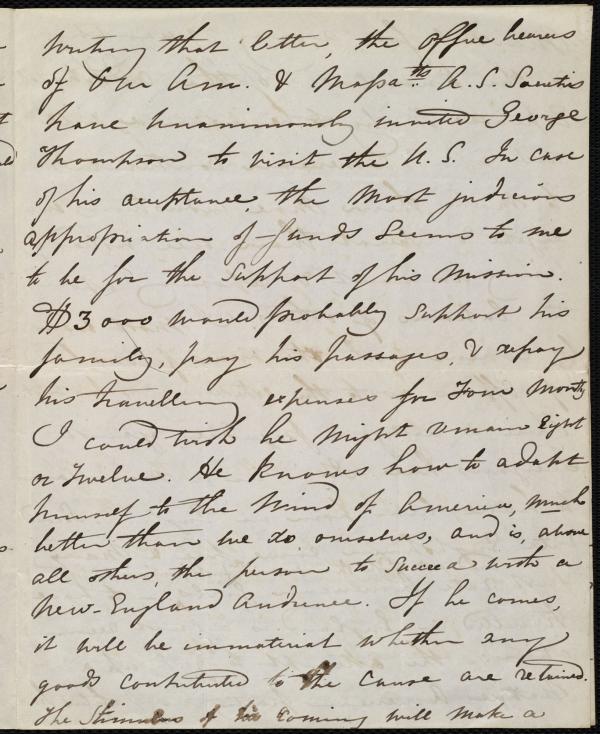 writing that letter, the office bearers
of Our Am. & Massatts. A.S. Societies
have unanimously invited George
Thompson to visit the U.S. In case
of his acceptance, the most judicious
appropriation of funds seems to me
to be for the support of his mission.
$3000 would probably support his
family, pay his passages, & repay
his travelling expenses for Four Months
I could wish he might remain Eight
or Twelve. He knows how to adapt
himself to the mind of America, much
better than we do ourselves, and is, above
all others, the person to succeed with a
New-England Audience. If he comes,
it will be immaterial whether any
goods contributed to the cause are retained.
The Stimulus of his coming will make a